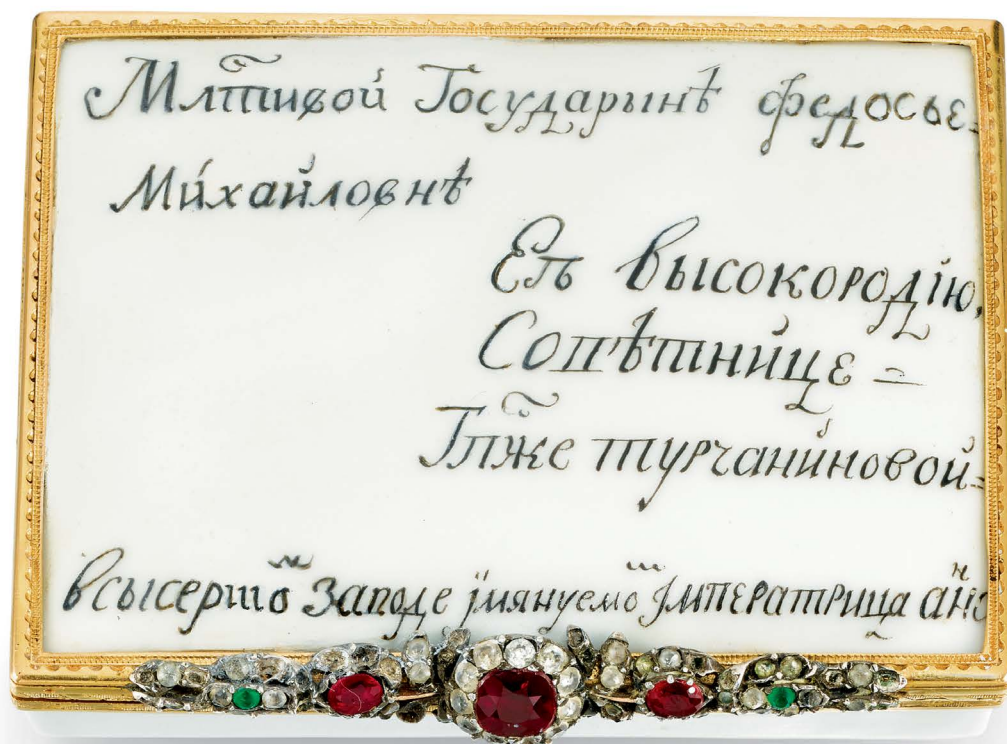 Млтивой Государынѣ федосье=
Михайловнѣ
Еѣ высокородїю,
Совѣтнице=
Гпже турчаниновой=
всысерто заводе імянуемо императрица анъ